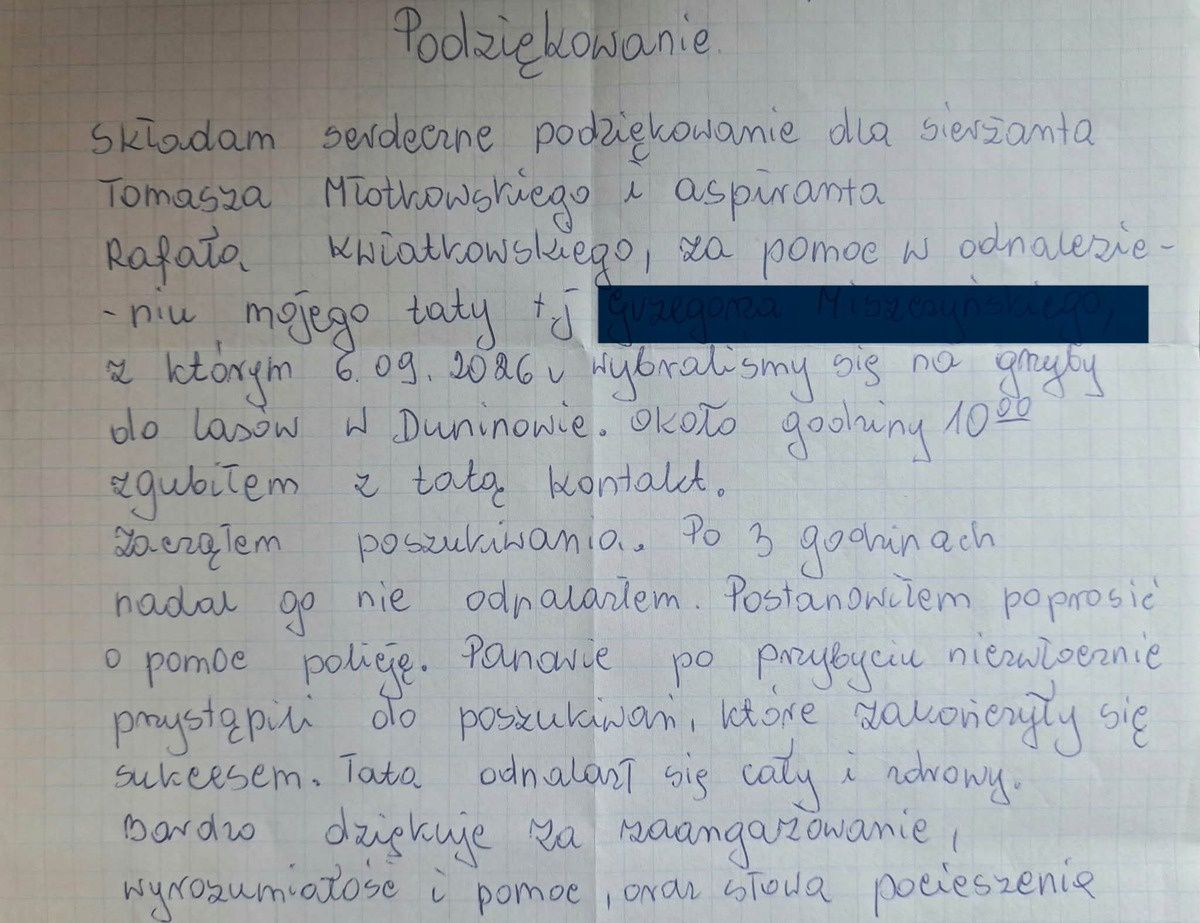 Podziękowanie.
Składam serdeczne podziękowanie dla sierżanta
Tomasza Młotkowskiego i aspiranta
Rafała Kwiatkowskiego, za pomoc w odnalezie-
-niu mojego taty tj
z którym 6.09.2026r wybraliśmy się na grzyby
do lasów w Duninowie. Około godziny 10⁰⁰
zgubiłem z tatą kontakt.
Zacząłem poszukiwania. Po 3 godzinach
nadal go nie odnalazłem. Postanowiłem poprosić
o pomoc policję. Panowie po przybyciu niezwłocznie
przystąpili do poszukiwań, które zakończyły się
sukcesem. Tata odnalazł się cały i zdrowy.
Bardzo dziękuje za zaangażowanie,
wyrozumiałość i pomoc, oraz słowa pocieszenia